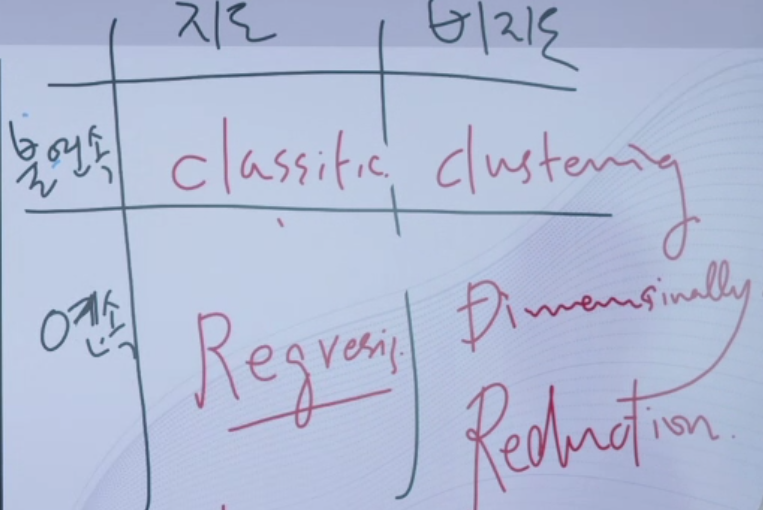 지도 비지도
불연속 classific. clustering
연속 Regresis. Dimensinally
Reduction.